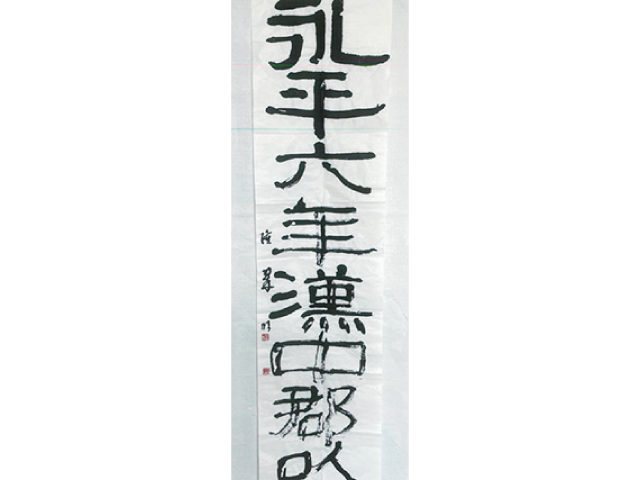 永平六年漢中郡以